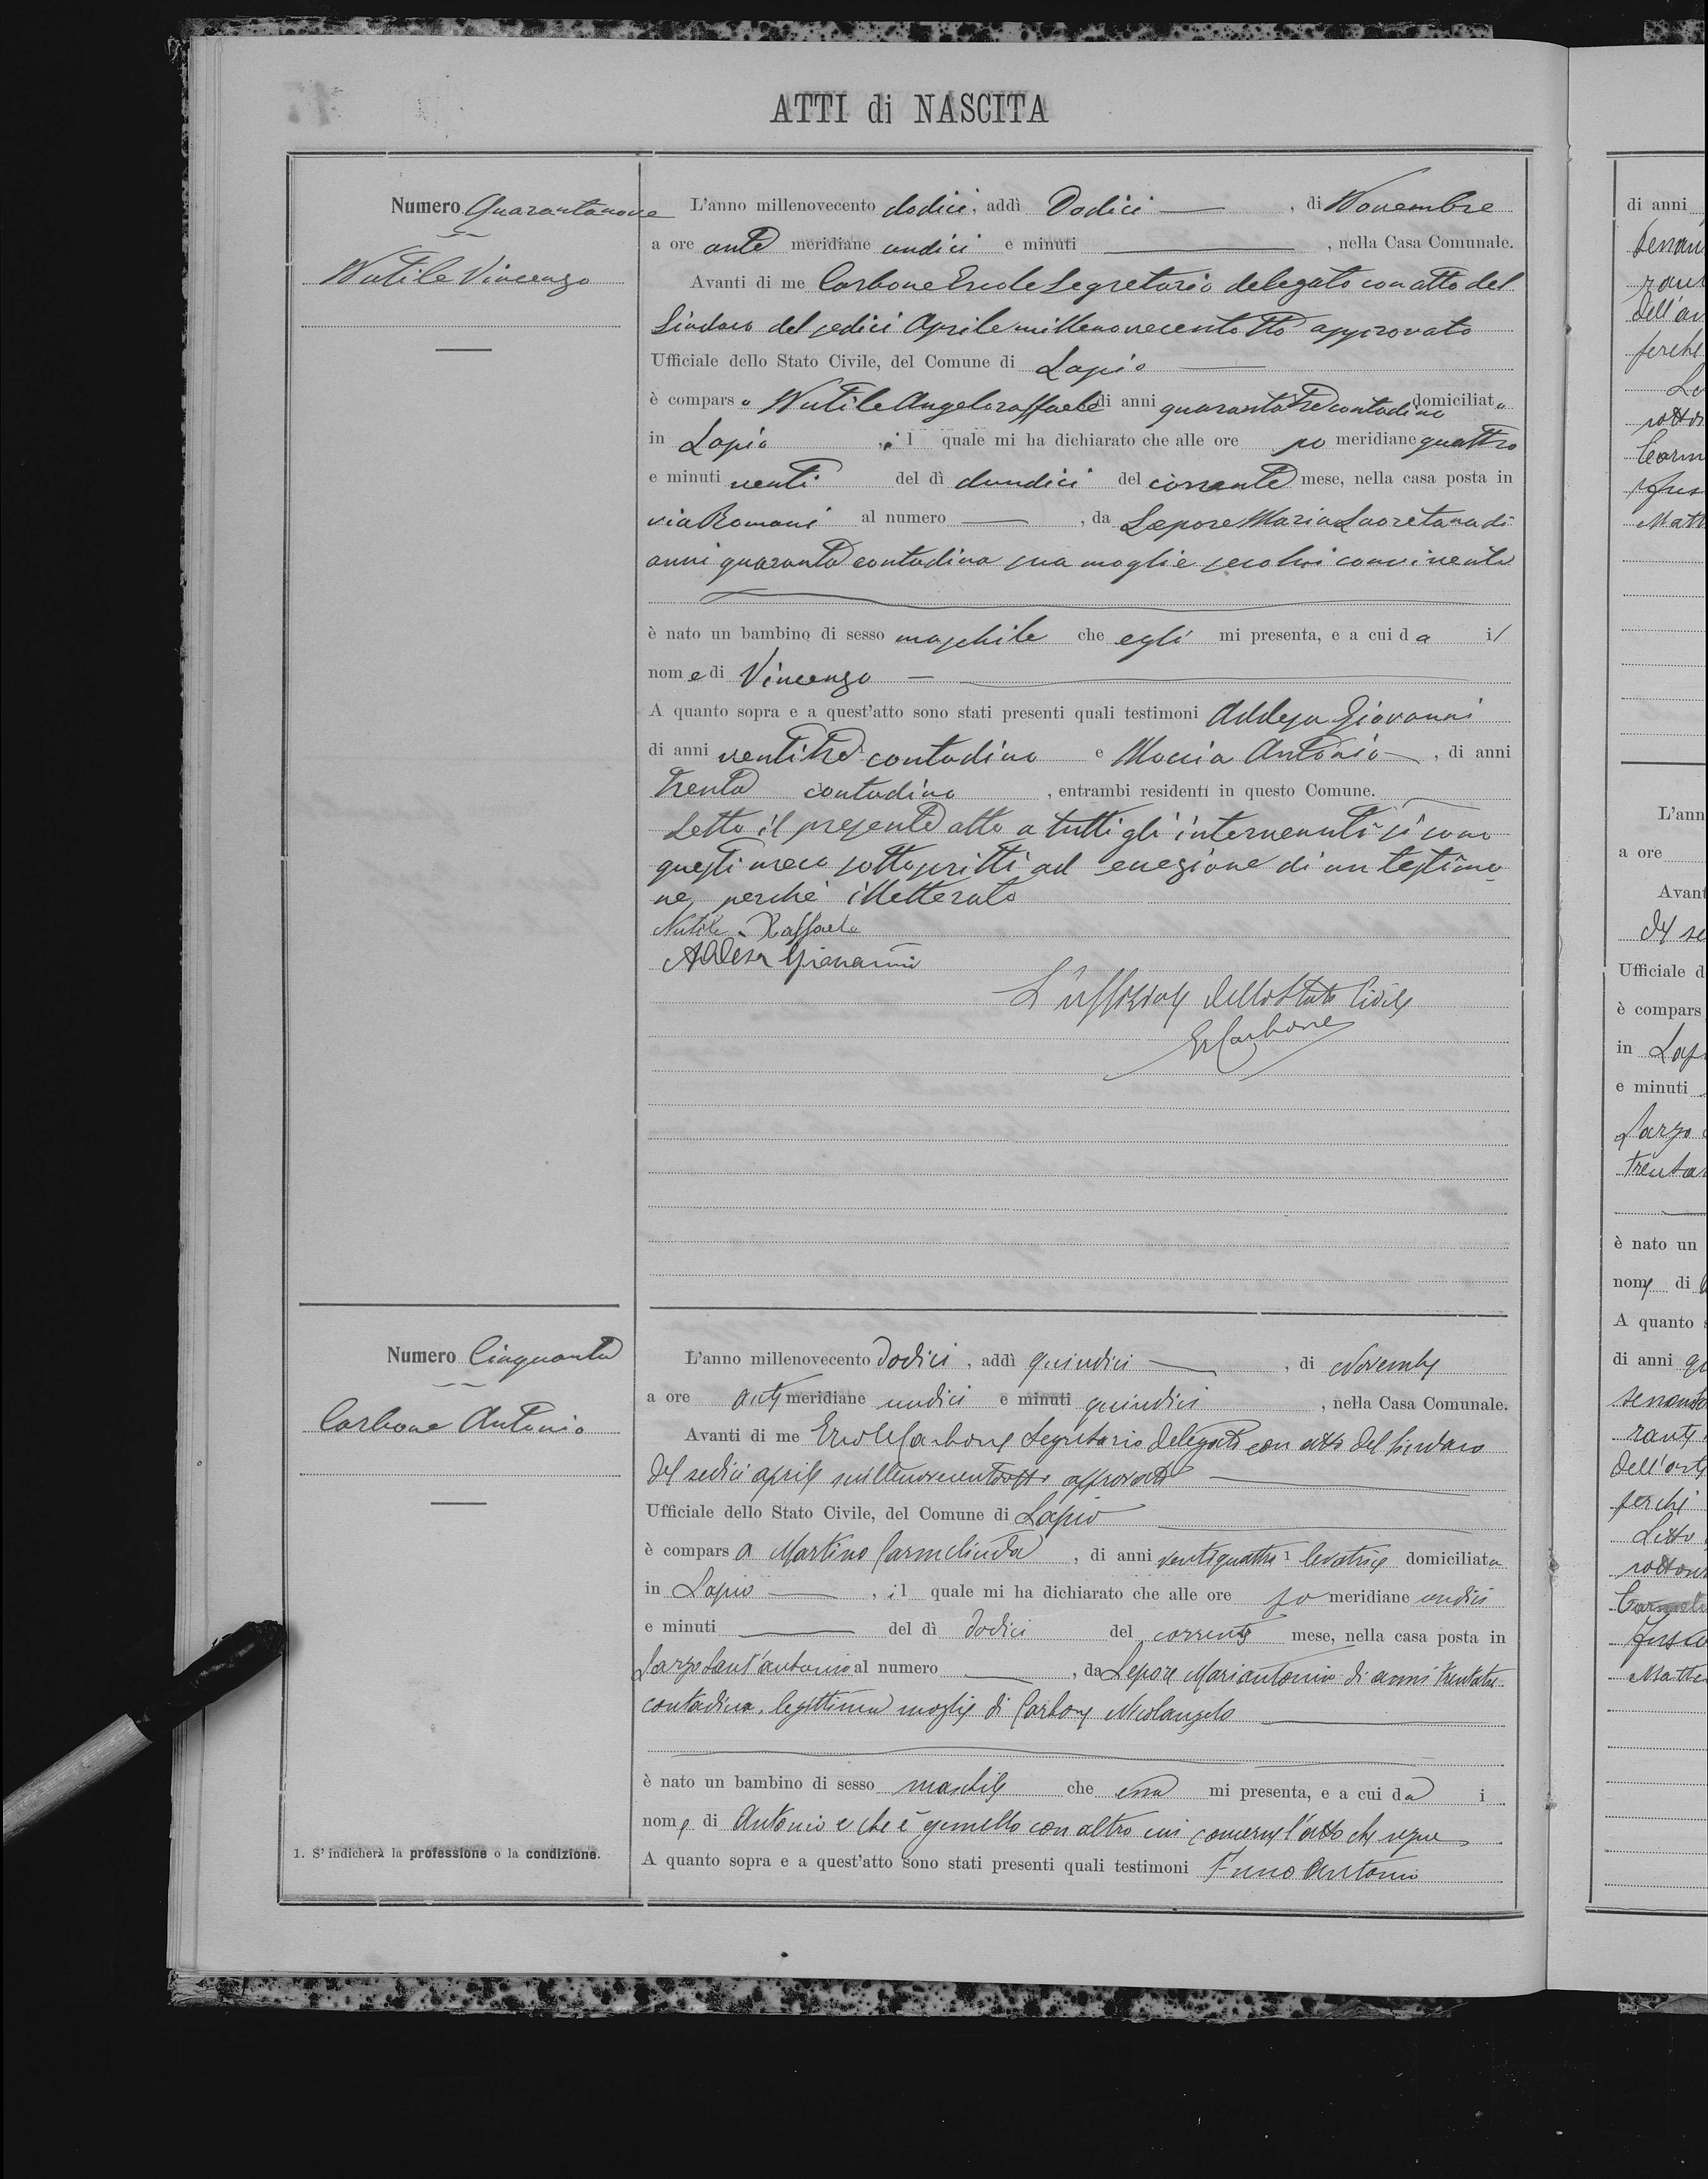 ATTI di NASCITA
Numero Quarantanove
Nutile Vincenzo
L'anno millenovecento dodici, addì Dodici, di Novembre
a ore ante meridiane undici e minuti, nella Casa Comunale.
Avanti di me Carbone Ercole Segretario delegato con atto del
Sindaco del sedici Aprile millenovecentotto approvato
Ufficiale dello Stato Civile, del Comune di Lapio
è comparso Nutile Angeloraffaele di anni quarantatre contadino domiciliato
in Lapio, il quale mi ha dichiarato che alle ore po meridiane quattro
e minuti venti del dì undici del corrente mese, nella casa posta in
via Romani al numero, da Lepore Maria Laoretana di
anni quaranta contadina sua moglie seco lui convivente
è nato un bambino di sesso maschile che egli mi presenta, e a cui da il
nome di Vincenzo
A quanto sopra e a quest'atto sono stati presenti quali testimoni Addesa Giovanni
di anni ventitre contadino e Moccia Antonio, di anni
trenta contadino, entrambi residenti in questo Comune.
Letto il presente atto a tutti gli intervenuti si sono
questi meco sottoscritti ad eccezione di un testimo-
ne, perché illetterato
Nutile Raffaele
Addesa Giovanni
L'uffiziale dello Stato Civile
E Carbone
Numero Cinquanta
Carbone Antonio
L'anno millenovecento dodici, addì quindici, di Novembre
a ore anti meridiane undici e minuti quindici, nella Casa Comunale.
Avanti di me Ercole Carbone Segretario delegato con atto del Sindaco
del sedici aprile millenovecentotto approvato
Ufficiale dello Stato Civile, del Comune di Lapio
è comparsa Martino Carmelinda, di anni ventiquattro 1 levatrice domiciliata
in Lapio, il quale mi ha dichiarato che alle ore po meridiane undici
e minuti del dì dodici del corrente mese, nella casa posta in
Largo Sant'antonio al numero, da Lepore Mariantonia di anni trentatre
contadina, legittima moglie di Carbone Nicolangelo
è nato un bambino di sesso maschile che essa mi presenta, e a cui da i
nome di Antonio e che è gemello con altro cui concerne l'atto che segue
A quanto sopra e a quest'atto sono stati presenti quali testimoni Antonio
1. S'indicherà la professione o la condizione.
di anni
dell'ar
L'ann
a ore
Avant
Ufficiale d
è compars
in Lap
e minuti
Largo
è nato un
nome di
A quanto
di anni
dell'
perché
Letto